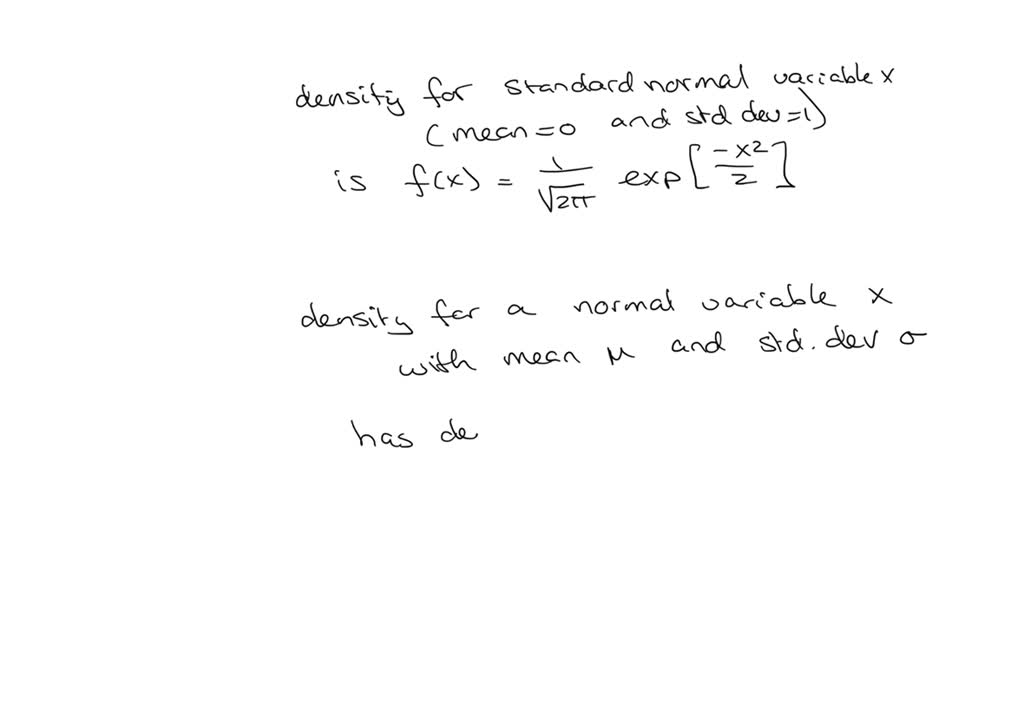 density for standard normal variable x
(mean = 0 and std dev = 1)
is f(x) = 1/√2π exp[-x²/2]
density for a normal variable x
with mean μ and std. dev σ
has de